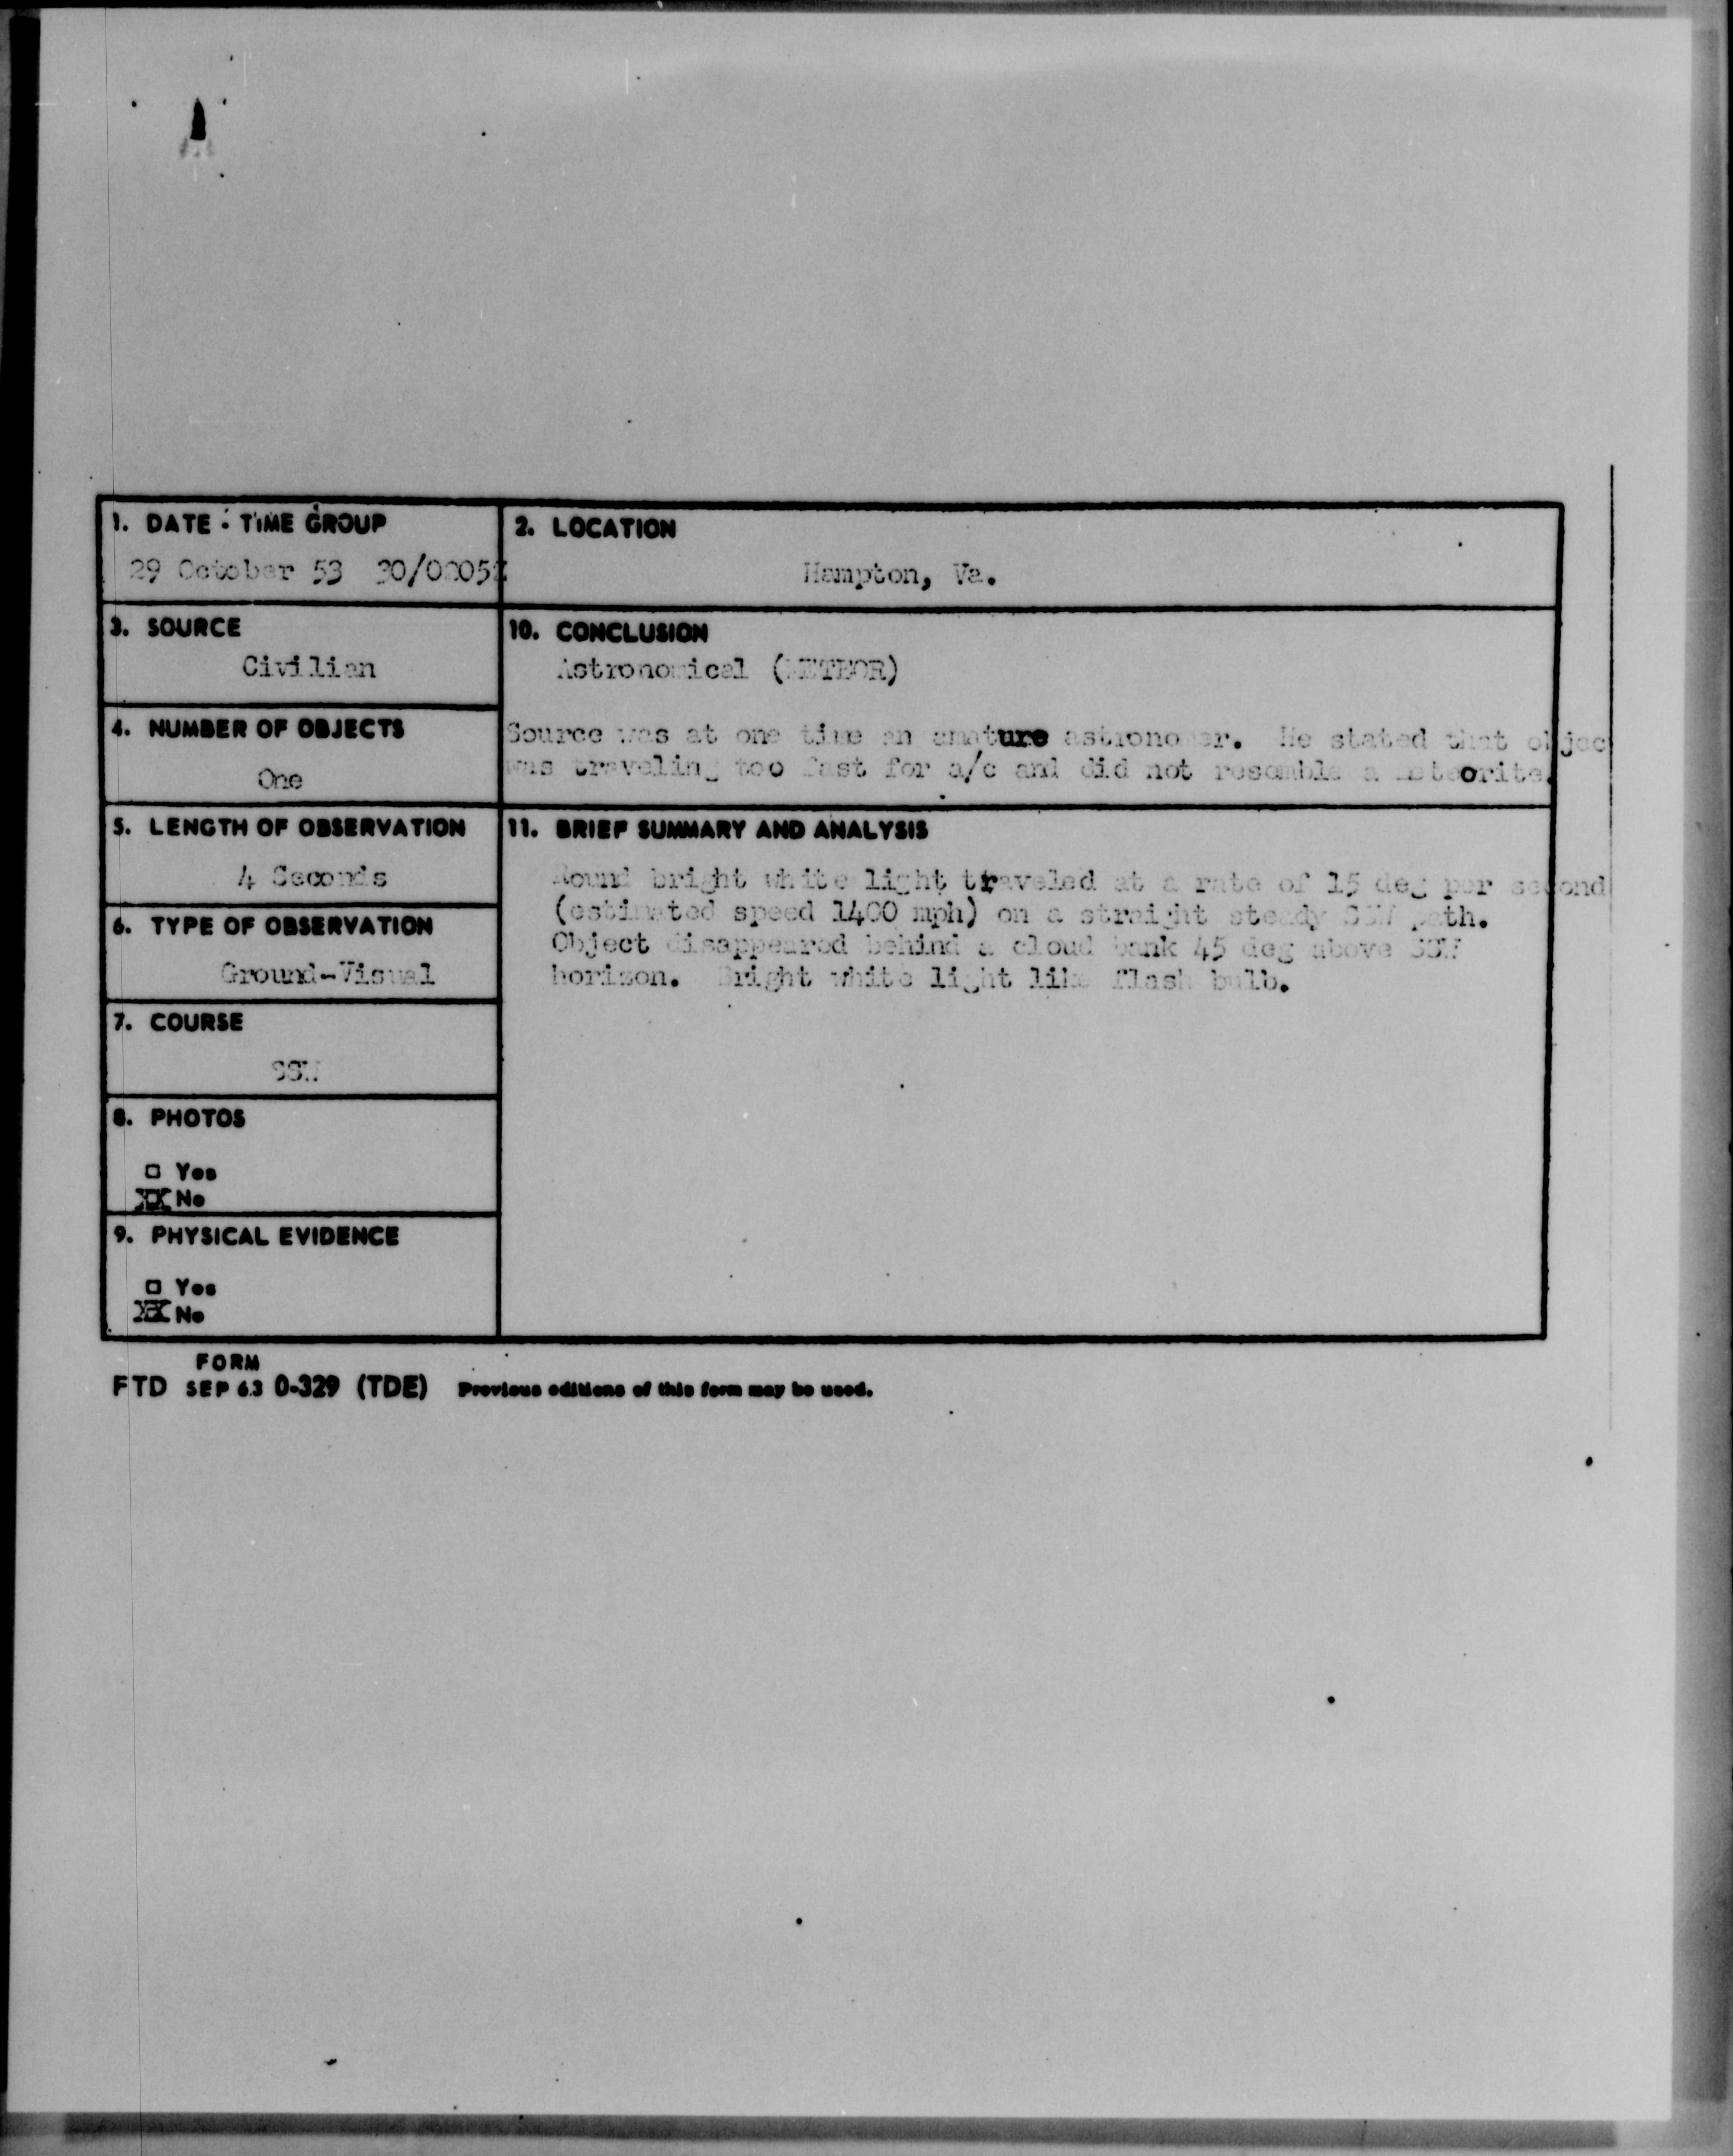 1. DATE - TIME GROUP
29 October 53 30/0205Z
2. LOCATION
Hampton, Va.
3. SOURCE
Civilian
10. CONCLUSION
Astronomical (METEOR)
Source was at one time an amature astronomer. He stated that objec
was traveling too fast for a/c and did not resemble a meteorite.
4. NUMBER OF OBJECTS
One
5. LENGTH OF OBSERVATION
4 Seconds
11. BRIEF SUMMARY AND ANALYSIS
Round bright white light traveled at a rate of 15 deg per second
(estimated speed 1400 mph) on a straight steady SSW path.
Object disappeared behind a cloud bank 45 deg above SSW
horizon. Bright white light like flash bulb.
6. TYPE OF OBSERVATION
Ground-Visual
7. COURSE
SSW
8. PHOTOS
□ Yes
XX No
9. PHYSICAL EVIDENCE
□ Yes
XX No
FORM
FTD SEP 63 0-329 (TDE) Previous editions of this form may be used.